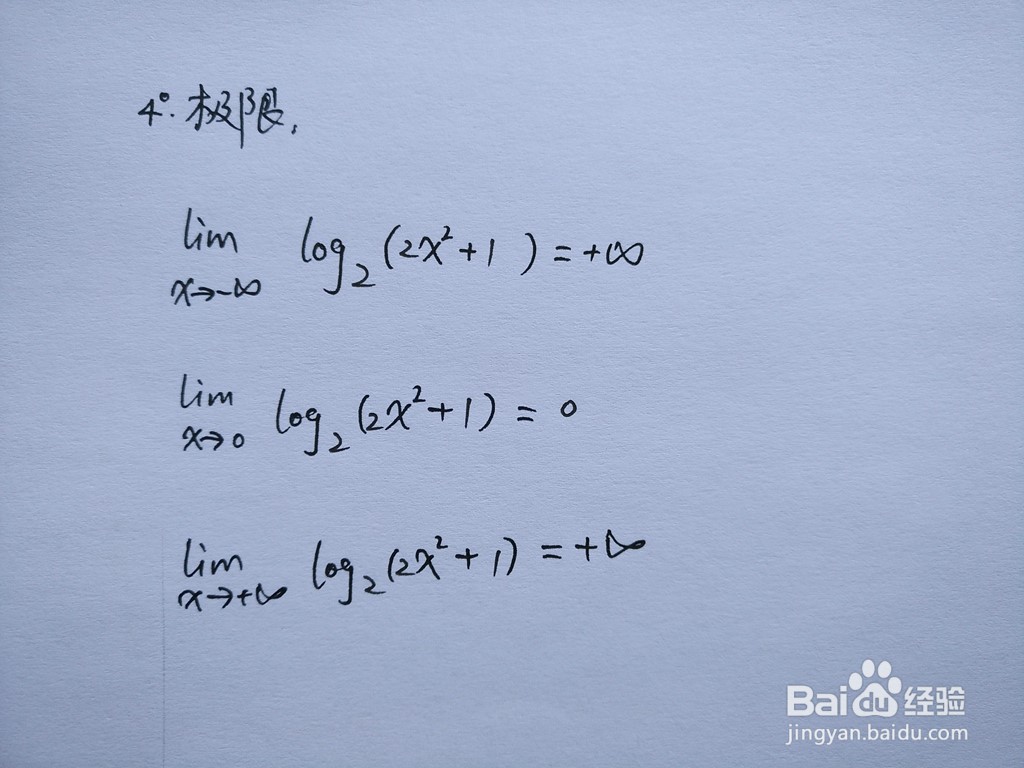 4°. 极限.
lim x→-∞ log₂(2x²+1) = +∞
lim x→0 log₂(2x²+1) = 0
lim x→+∞ log₂(2x²+1) = +∞
Bai du 经验
jingyan.baidu.com